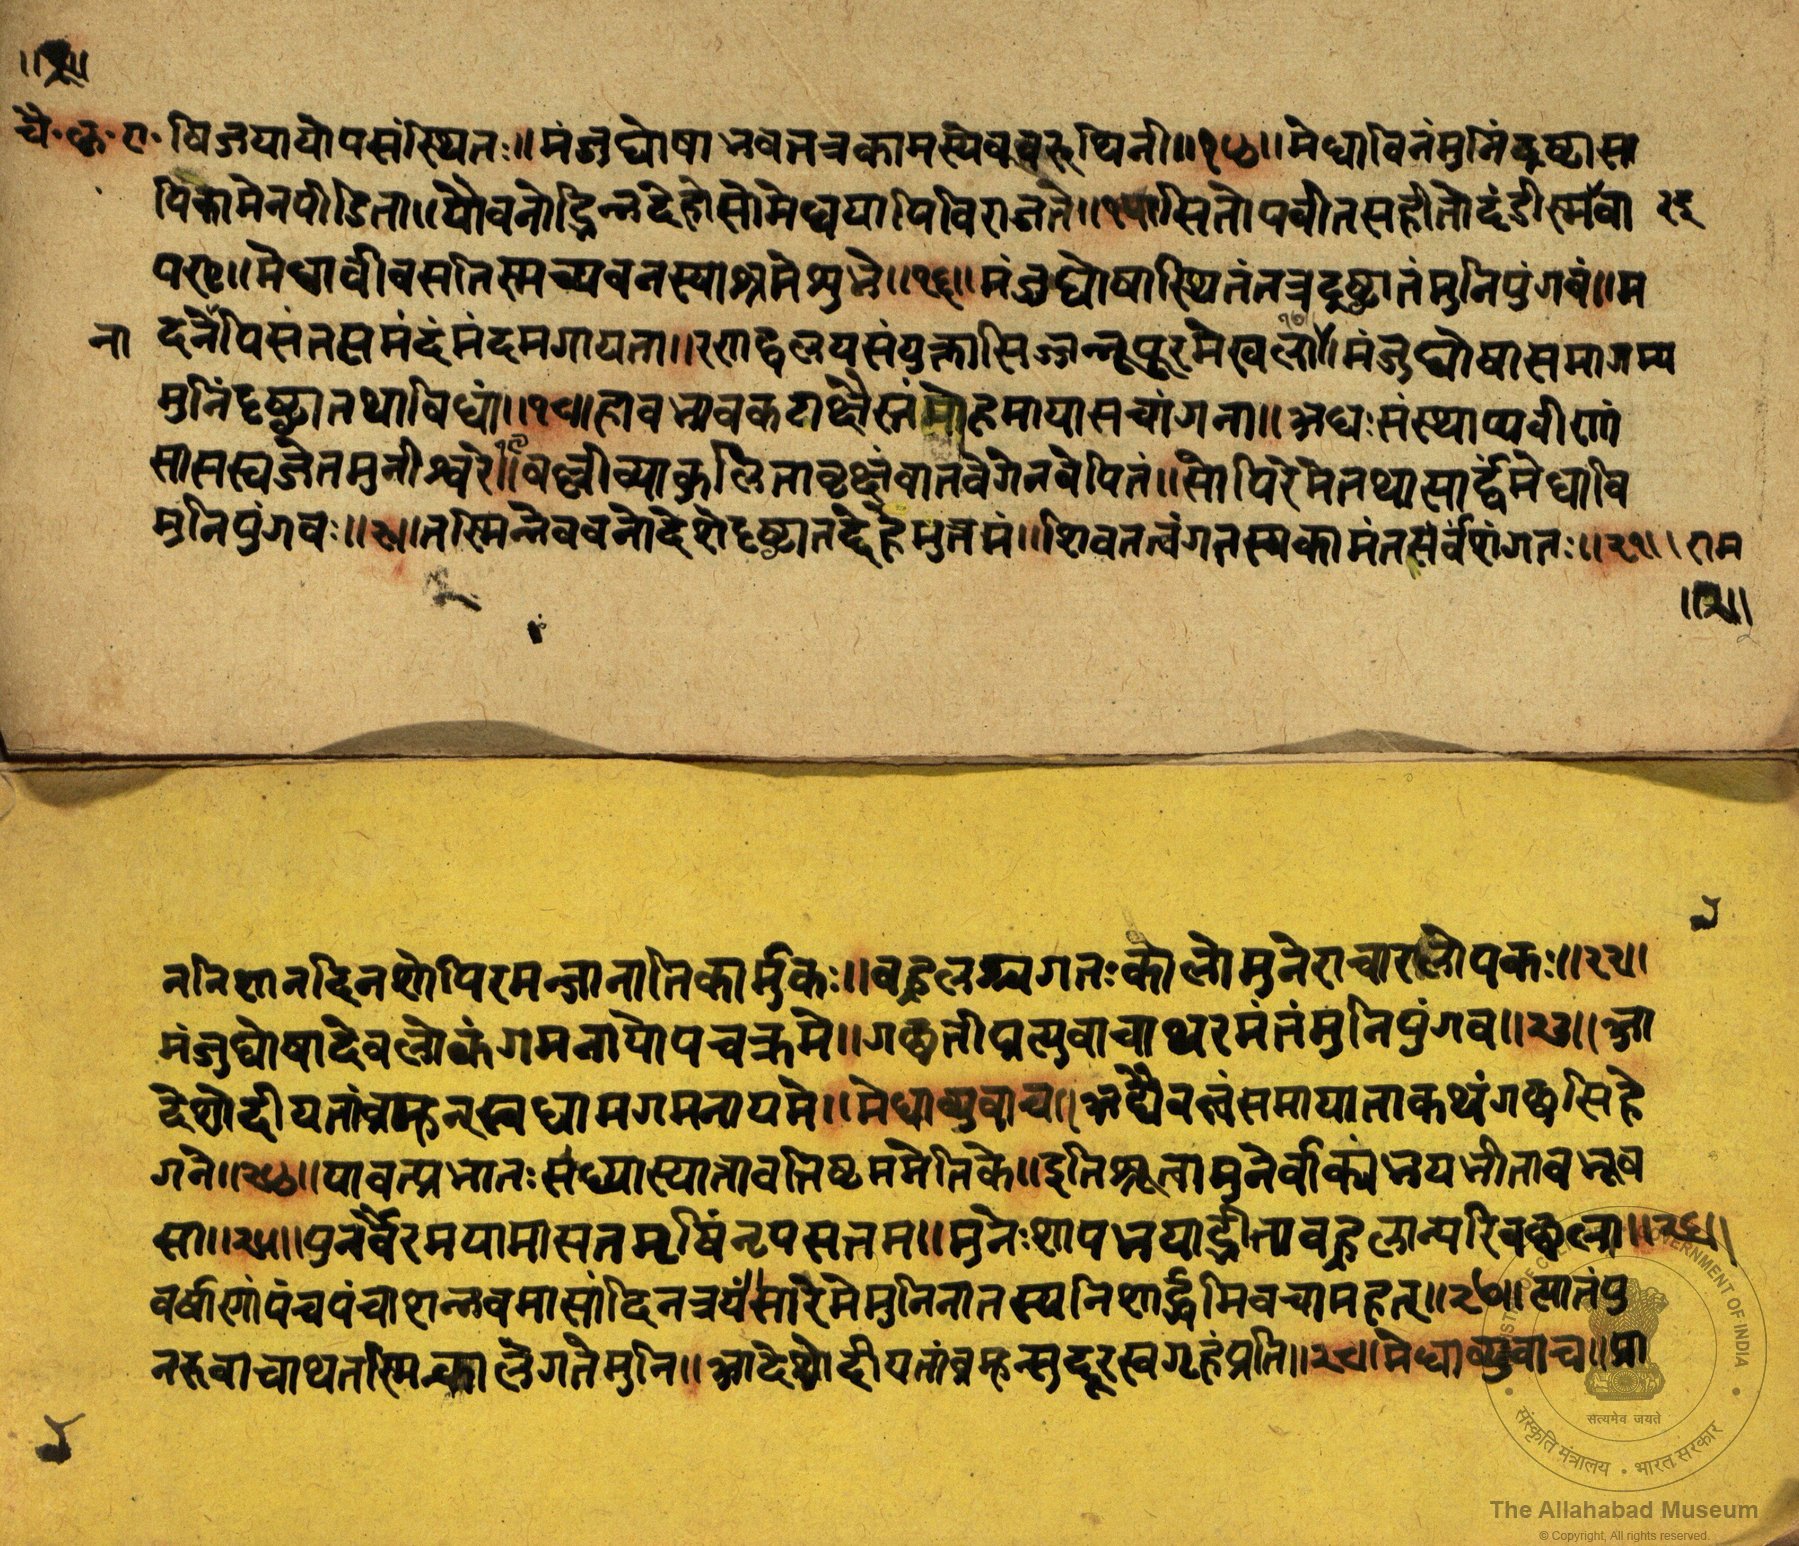 चै॰ कृ॰ ए॰ विजयायोपसंस्थितः॥ मंजुघोषाभवतत्रकामस्येववरूथिनी॥१४॥ मेधाविनंमुनिंदृष्ट्वासा
पिकामेनपीडिता॥ यौवनोद्भिन्नदेहोसोमेघयापिविराजते॥१५॥ सितोपवीतसहीतोदंडीस्मेवा २६
परः॥ मेधावीवसतिस्मच्यवनस्याश्रमेशुभे॥१६॥ मंजुघोषास्थितंतत्रदृष्ट्वातंमुनिपुंगवं॥ म
ना दनोपिसंतसमंदंमंदमगायता॥ रणद्वलयसंयुक्तासिञ्जन्नूपुरमेखला॥ मंजुघोषासमागम्य
मुनिंदृष्ट्वातथाविधां॥१८॥ हावभावकटाक्षैस्तंमोहमायासचांगना॥ अधःसंस्थाप्यवीणां
सासस्वजेतमुनीश्वरे॥ वल्लीव्याकुलितावृक्षंवातवेगेनवेपितं॥ सोपिरेमेतथासार्द्धंमेधावि
मुनिपुंगवः॥२०॥ तस्मिन्नेववनोदेशेदृष्ट्वातद्देहमुत्तमं॥ शिवतत्वंगतस्यकामंतत्सर्वशंगतः॥२१॥ राम
॥२॥
ननिशानदिनशोपिरमन्जानातिकार्मुकः॥ बहुलस्यगतःकालोमुनेराचारलोपकः॥२२॥
मंजुघोषादेवलोकंगमनायोपचक्रमे॥ गछतीप्रत्युवाचाथरमंतंमुनिपुंगव॥२३॥ आ
देशोदीयतांब्रम्हन्स्वधामगमनायमे॥ मेधाव्युवाच॥ अद्यैवत्वंसमायाताकथंगछसिहे
गने॥२४॥ यावत्प्रभातःसंध्यास्यात्तावत्तिष्टममेतिके॥ इतिश्रुत्वामुनेर्वाक्यंभयभीताबभूव
सा॥२५॥ पुनर्वैरमयामासतमृषिंनृपसत्तम॥ मुनेःशापभयाद्भीताबहुलान्परिवछलान्॥२६॥
वर्षाणांपंचपंचाशन्नवमासांदिनत्रयं॥ सारेमेमुनिनातस्यनिशार्द्धमिवचामहत्॥२७॥ सातंपु
नरुवाचाथतस्मिन्कालेगतेमुनि॥ आदेशोदीयतांब्रम्हन्सुदूरस्वगृहंप्रति॥२८॥ मेधाव्युवाच॥ प्रा
सत्यमेव जयते
संस्कृति मंत्रालय • भारत सरकार
The Allahabad Museum
© Copyright, All rights reserved.